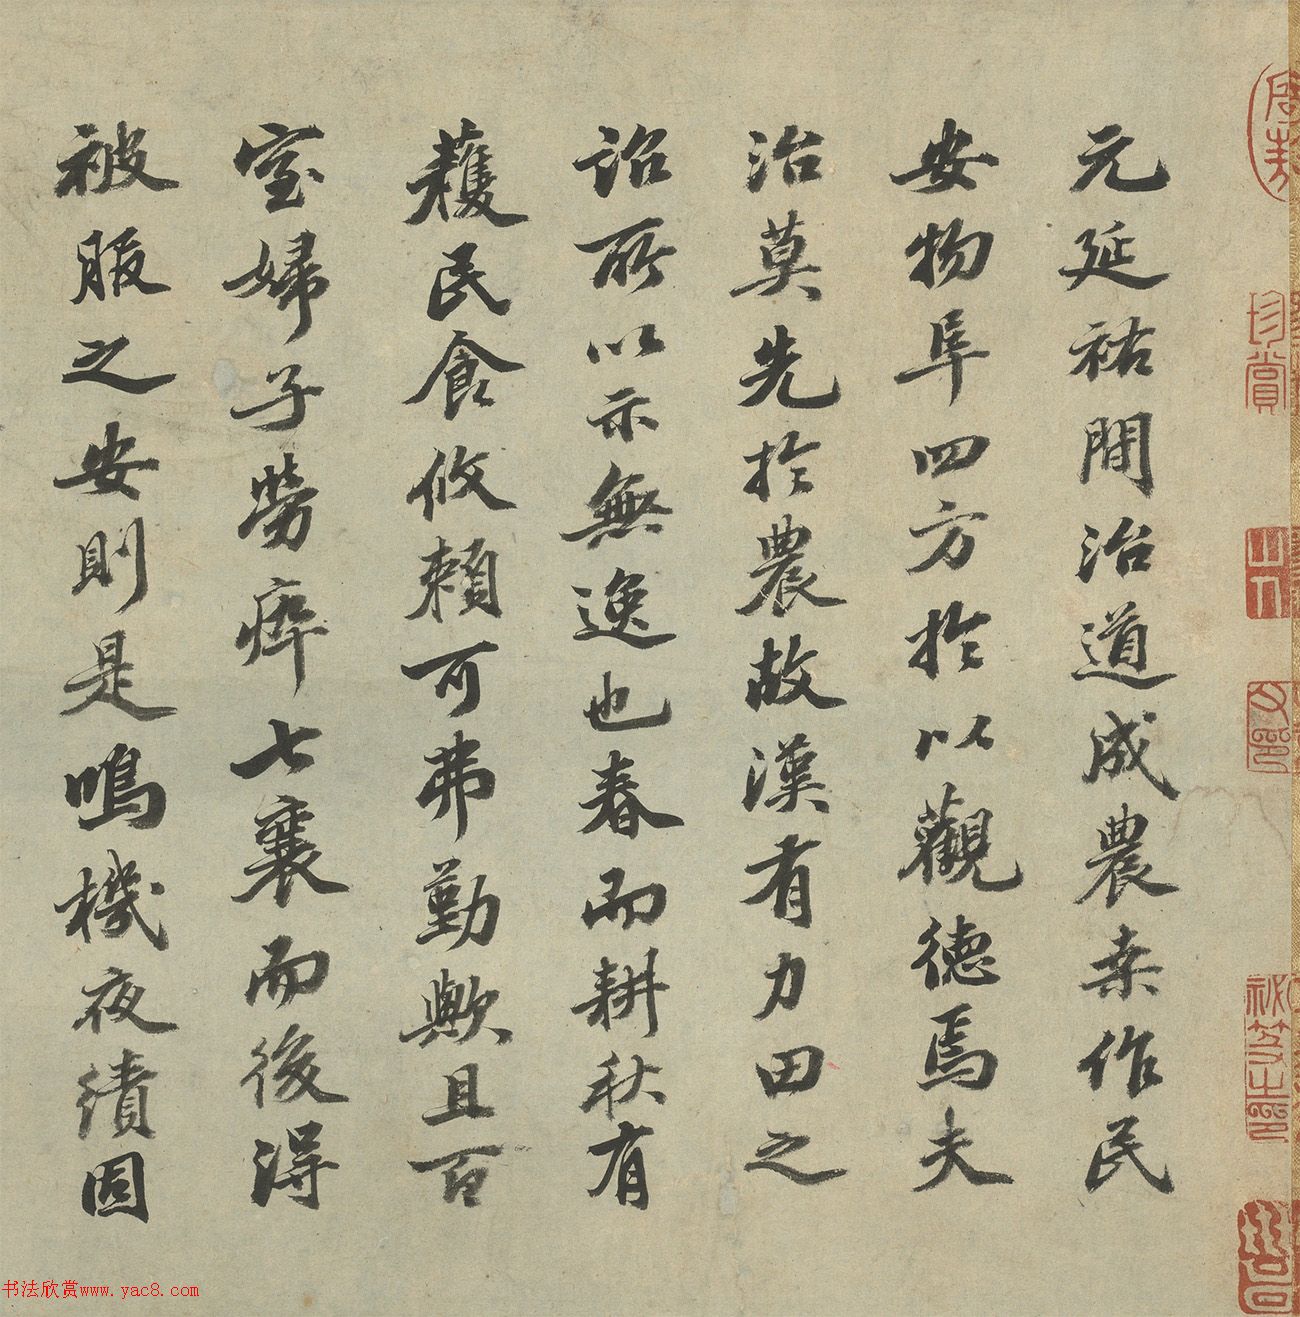 元延祐間治道成農桒作民
安物阜四方於以觀德焉夫
治莫先於農故漢有力田之
詔所以示無逸也春而耕秋有
穫民食攸賴可弗勤歟且百
室婦子勞瘁七襄而後得
被服之安則是鳴機夜績固
珍賞
書法欣赏www.yac8.com